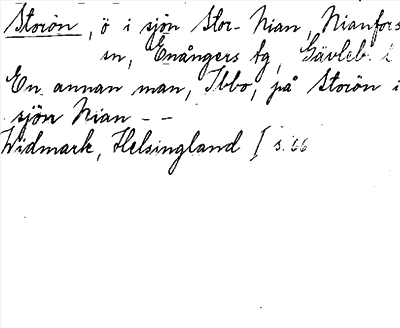 Storön, ö i sjön Stor-Nian, Nianfors
sn, Enångers tg, Gävleb. l
En annan man, Ibbo, på Storön i
sjön Nian - -
Widmark, Helsingland I s. 66